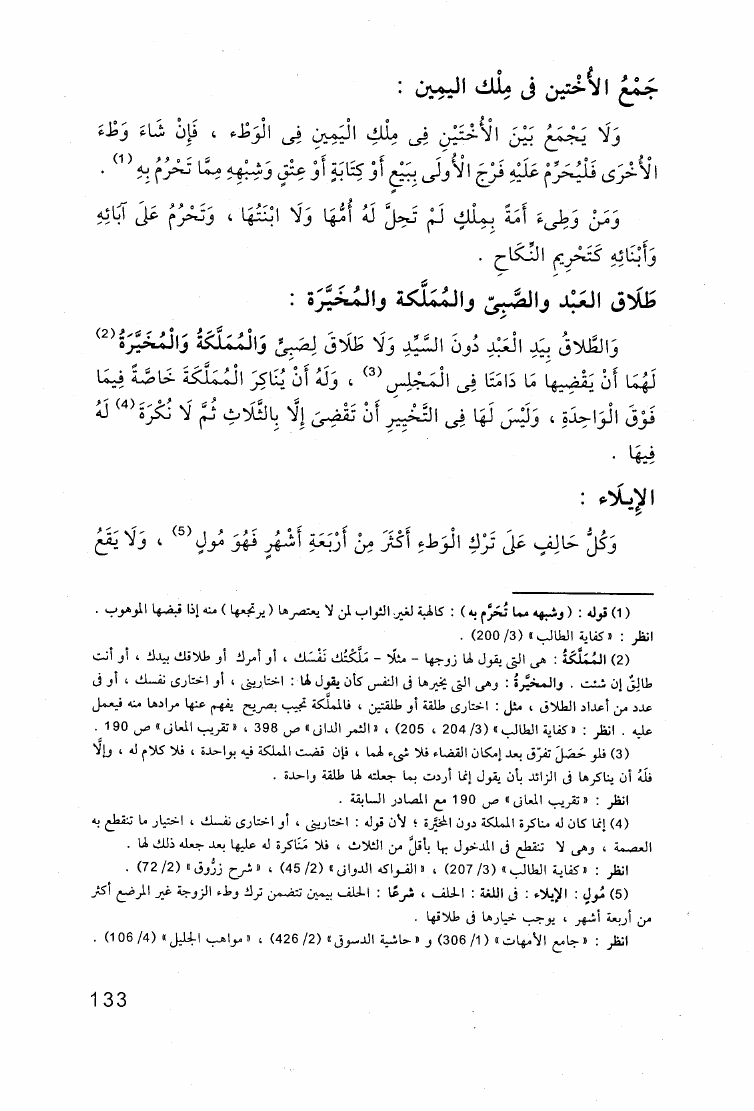 جَمْعُ الأُخْتين فى مِلْك اليمِين :
وَلَا يَجْمَعُ بَيْنَ الْأُخْتَيْنِ فِى مِلْكِ الْيَمِينِ فِى الْوَطْءِ ، فَإِنْ شَاءَ وَطْءَ
الْأُخْرَى فَلْيُحَرِّمْ عَلَيْهِ فَرْجَ الْأُولَى بِبَيْعٍ أَوْ كِتَابَةٍ أَوْ عِتْقٍ وَشِبْهِهِ مِمَّا تَحْرُمُ بِهِ (1) .
وَمَنْ وَطِىءَ أَمَةً بِمِلْكٍ لَمْ تَحِلَّ لَهُ أُمُّهَا وَلَا ابْنَتُهَا ، وَتَحْرُمُ عَلَى آبَائِهِ
وَأَبْنَائِهِ كَتَحْرِيمِ النِّكَاحِ .
طَلَاق العَبْد والصَّبِىّ والمُمَلَّكة والمُخَيَّرَة :
وَالطَّلَاقُ بِيَدِ الْعَبْدِ دُونَ السَّيِّدِ وَلَا طَلَاقَ لِصَبِىٍّ وَالْمُمَلَّكَةُ وَالْمُخَيَّرَةُ (2)
لَهُمَا أَنْ يَقْضِيهَا مَا دَامَتَا فِى الْمَجْلِسِ (3) ، وَلَهُ أَنْ يُنَاكِرَ الْمُمَلَّكَةَ خَاصَّةً فِيمَا
فَوْقَ الْوَاحِدَةِ ، وَلَيْسَ لَهَا فِى التَّخْيِيرِ أَنْ تَقْضِىَ إِلَّا بِالثَّلَاثِ ثُمَّ لَا نُكْرَةَ (4) لَهُ
فِيهَا .
الإِيلَاء :
وَكُلُّ حَالِفٍ عَلَى تَرْكِ الْوَطءِ أَكْثَرَ مِنْ أَرْبَعَةِ أَشْهُرٍ فَهُوَ مُولٍ (5) ، وَلَا يَقَعُ
(1) قوله : ( وشبهه مما تُحَرَّم به ) : كالهبة لغير الثواب لمن لا يعتصرها ( يرتجعها ) منه إذا قبضها الموهوب .
انظر : « كفاية الطالب » (3/ 200) .
(2) المُمَلَّكَةُ : هى التى يقول لها زوجها - مثلًا - مَلَّكْتُك نَفْسَك ، أو أمرك أو طلاقك بيدك ، أو أنت
طالِقٌ إن شئت . والمخيَّرةُ : وهى التى يخيرها فى النفس كأن يقول لها : اختارينى ، أو اختارى نفسك ، أو فى
عدد من أعداد الطلاق ، مثل : اختارى طلقة أو طلقتين ، فالمملَّكة تجيب بصريح يفهم عنها مرادها منه فيعمل
عليه . انظر : « كفاية الطالب » (3/ 204 ، 205) ، « الثمر الدانى » ص 398 ، « تقريب المعانى » ص 190 .
(3) فلو حَصَلَ تفرّق بعد إمكان القضاء فلا شىء لهما ، فإن قضت المملكة فيه بواحدة ، فلا كلام له ، وإلَّا
فلَهُ أن يناكرها فى الزائد بأن يقول إنما أردت بما جعلته لها طلقة واحدة .
انظر : « تقريب المعانى » ص 190 مع المصادر السابقة .
(4) إنما كان له مناكرة المملكة دون المخيَّرة ؛ لأن قوله : اختارينى ، أو اختارى نفسك ، اختيار ما تنقطع به
العصمة ، وهى لا تنقطع فى المدخول بها بأقلَّ من الثلاث ، فلا مُنَاكرة له عليها بعد جعله ذلك لها .
انظر : « كفاية الطالب » (3/ 207) ، « الفواكه الدوانى » (2/ 45) ، « شرح زرُّوق » (2/ 72) .
(5) مُولٍ : الإيلاء : فى اللغة : الحلف ، شرعًا : الحلف بيمين تتضمن ترك وطء الزوجة غير المرضع أكثر
من أربعة أشهر ، يوجب خيارها فى طلاقها .
انظر : « جامع الأمهات » (1/ 306) و « حاشية الدسوق » (2/ 426) ، « مواهب الجليل » (4/ 106) .
133